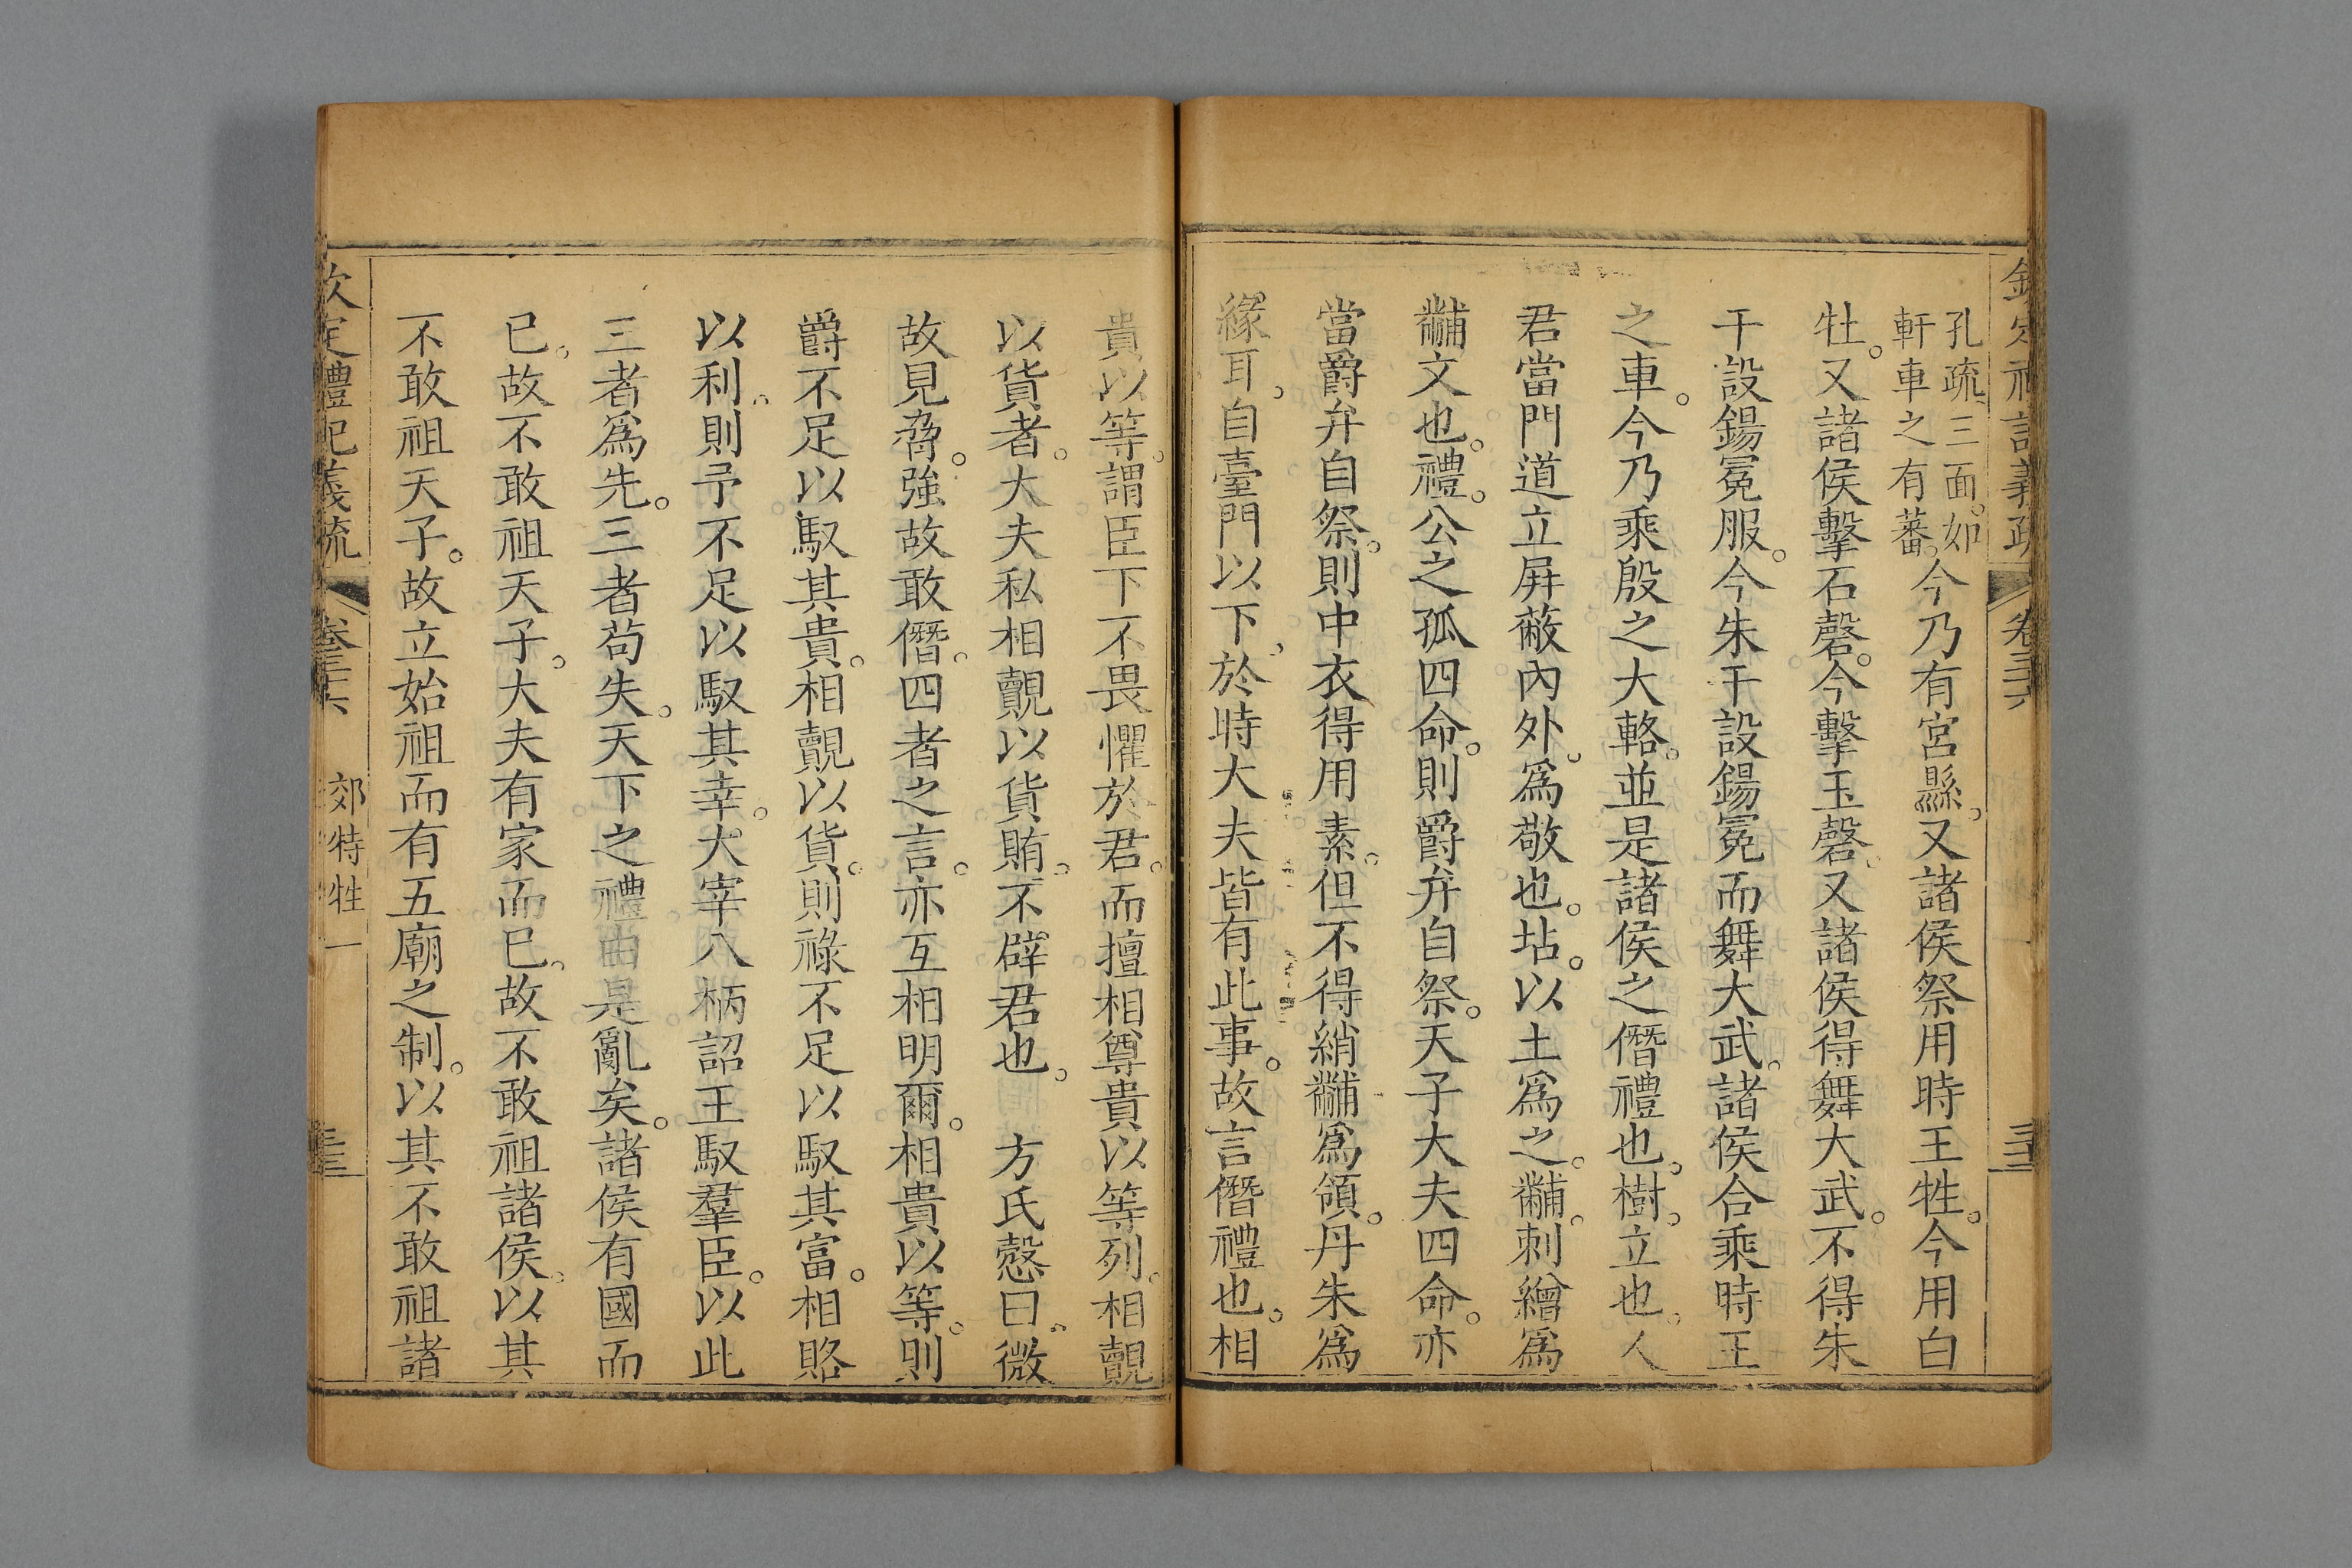 欽定禮記義疏 卷三十六
孔疏三面如
軒車之有蕃
今乃有宮縣又諸侯祭用時王牲今用白
牡又諸侯擊石磬今擊玉磬又諸侯得舞大武不得朱
干設鍚冕服今朱干設鍚冕而舞大武諸侯合乘時王
之車今乃乘殷之大輅並是諸侯之僭禮也樹立也人
君當門道立屏蔽內外爲敬也坫以土爲之黼刺繒爲
黼文也禮公之孤四命則爵弁自祭天子大夫四命亦
當爵弁自祭則中衣得用素但不得綃黼爲領丹朱爲
緣耳自臺門以下於時大夫皆有此事故言僭禮也相
貴以等謂臣下不畏懼於君而擅相尊貴以等列相覿
以貨者大夫私相覿以貨賄不辟君也 方氏慤曰微
故見脅強故敢僭四者之言亦互相明爾相貴以等則
爵不足以馭其貴相覿以貨則祿不足以馭其富相賂
以利則予不足以馭其幸大宰八柄詔王馭羣臣以此
三者爲先三者苟失天下之禮由是亂矣諸侯有國而
已故不敢祖天子大夫有家而已故不敢祖諸侯以其
不敢祖天子故立始祖而有五廟之制以其不敢祖諸
欽定禮記義疏 卷三十六 郊特牲一